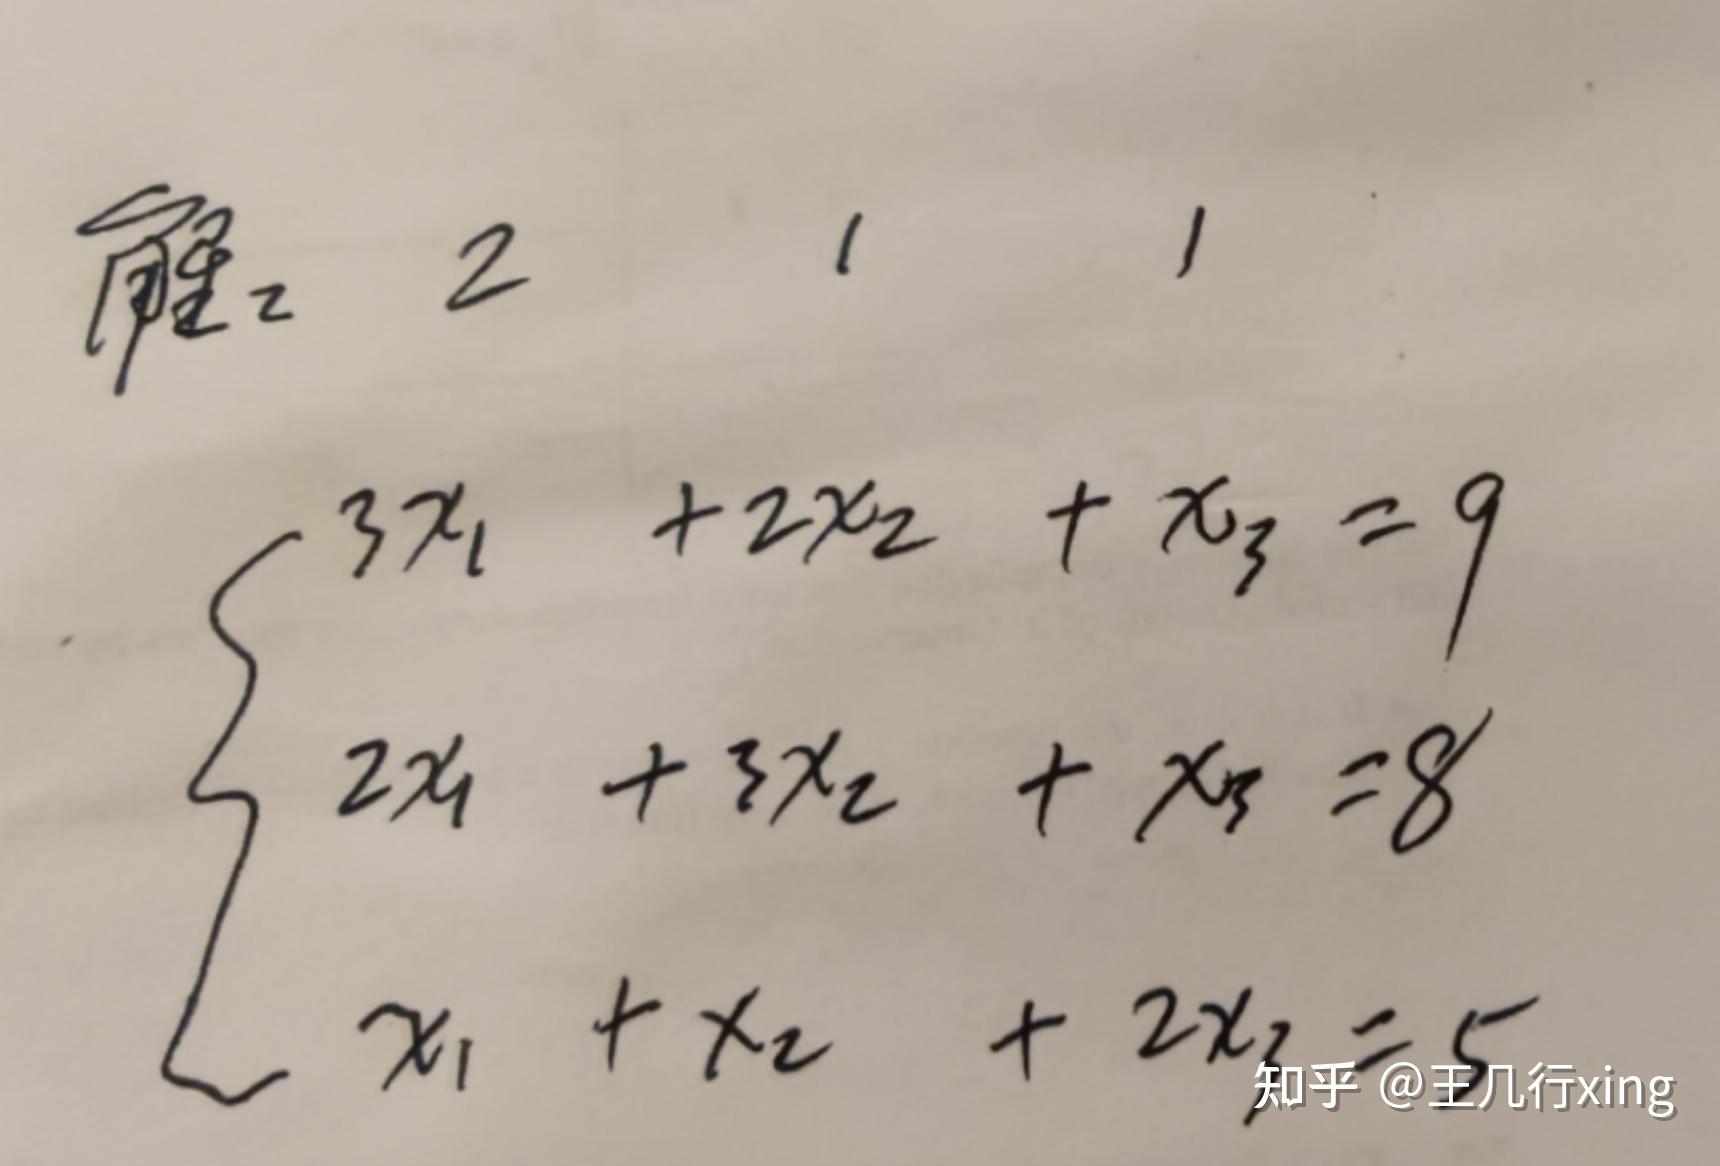 解: 2 1 1
3x₁ +2x₂ + x₃ = 9
2x₁ + 3x₂ + x₃ = 8
x₁ + x₂ + 2x₃ = 5
知乎 @王几行xing